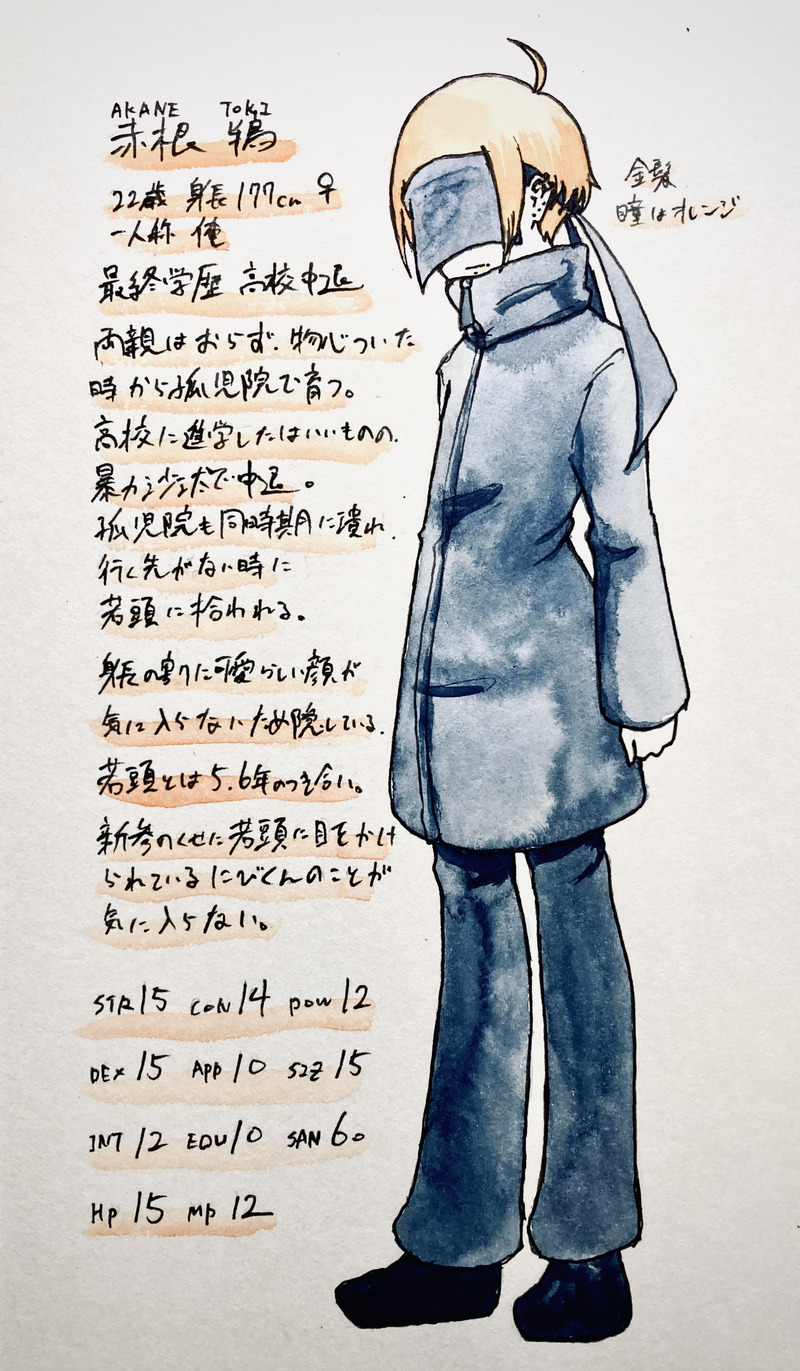 AKANE TOKI
赤根 鴇
22歳 身長177cm ♀
一人称 俺
最終学歴 高校中退
両親はおらず、物心ついた
時から孤児院で育つ。
高校に進学したはいいものの、
暴力沙汰で中退。
孤児院も同時期に潰れ、
行く先がない時に
若頭に拾われる。
身長の割りに可愛らしい顔が
気に入らないため隠している。
若頭とは5.6年のつき合い。
新参のくせに若頭に目をかけ
られているにびくんのことが
気に入らない。
STR15 CON14 POW12
DEX15 APP10 SIZ15
INT12 EDU10 SAN60
HP15 MP12
金髪
瞳はオレンジ